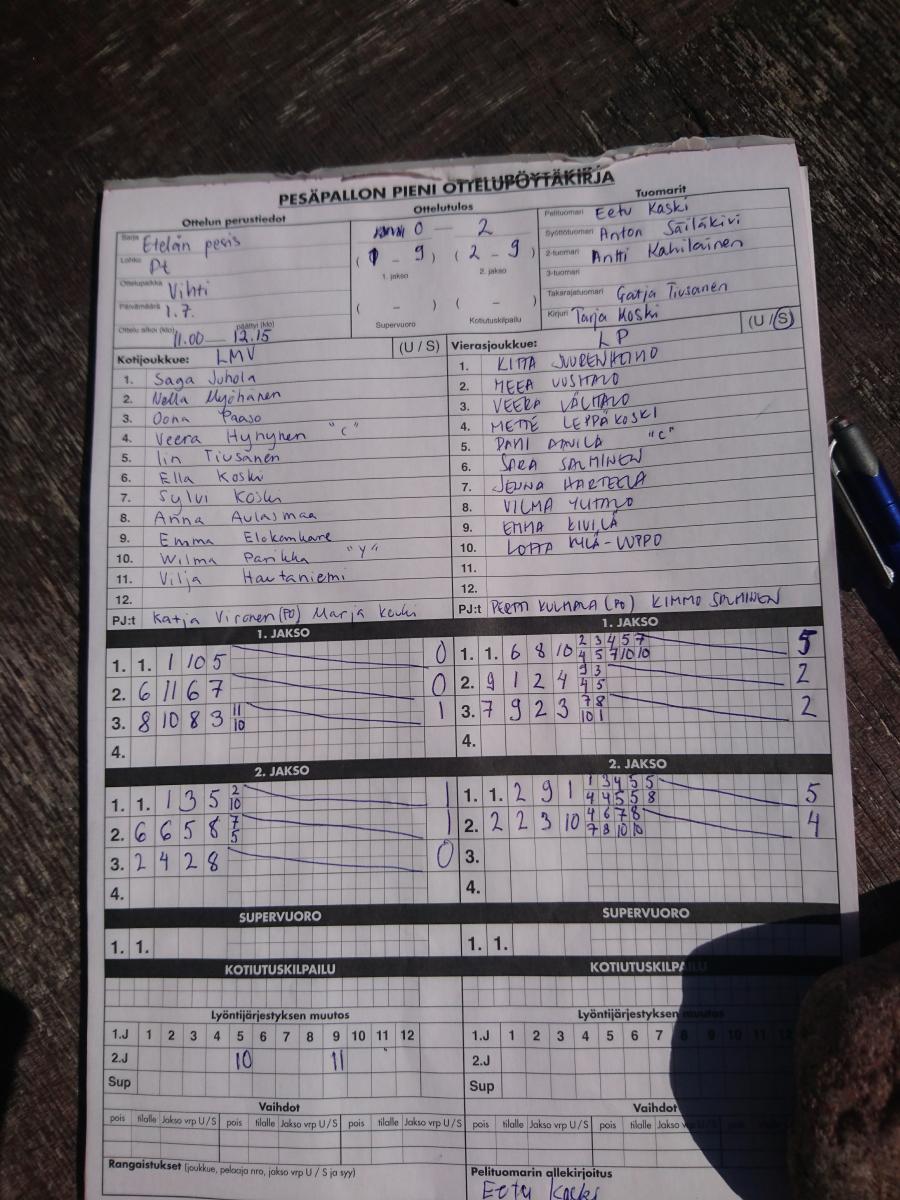 PESÄPALLON PIENI OTTELUPÖYTÄKIRJA
Ottelun perustiedot
Sarja Etelän pesis
Lohko Pt
Ottelupaikka Vihti
Päivämäärä 1.7.
Ottelu alkoi (klo) 11.00 päättyi (klo) 12.15
Ottelutulos
0 — 2
( 1 - 9 ) ( 2 - 9 )
1. jakso 2. jakso
( - ) ( - )
Supervuoro Kotiutuskilpailu
Tuomarit
Pelituomari Eetu Kaski
Syöttötuomari Anton Säiläkivi
2-tuomari Antti Kahilainen
3-tuomari
Takarajatuomari Gatja Tiusanen
Kirjuri Tarja Koski
Kotijoukkue: LMV (U / S)
1. Saga Juhola
2. Nella Myöhänen
3. Oona Paaso
4. Veera Hynynen "C"
5. Iin Tiusanen
6. Ella Koski
7. Sylvi Koski
8. Anna Aulasmaa
9. Emma Elokankare
10. Wilma Parikka "Y"
11. Vilja Hautaniemi
12.
PJ:t Katja Vironen (PO) Marja
Vierasjoukkue: LP (U / S)
1. KITTA JUURENHEIMO
2. MEEA UUSITALO
3. VEERA VÄLITALO
4. METTE LEPPÄKOSKI
5. "C"
6. SARA SALMINEN
7. JENNA HARTEELA
8. VILMA YLITALO
9. EMMA KIVILÄ
10. LOTTA KYLÄ-UPPO
11.
12.
PJ:t PERTTI KULMALA (PO) KIMMO SALMINEN
1. JAKSO
1. 1. 1 10 5 0
2. 6 11 6 7 0
3. 8 10 8 3 11 10 1
4.
1. JAKSO
1. 1. 6 8 10 2 3 4 5 7 5
4 5 7 10 10
2. 9 1 2 4 9 3 2
4 5
3. 7 9 2 3 7 8 2
10 1
4.
2. JAKSO
1. 1. 1 3 5 2 10 1
2. 6 6 5 8 7 5 1
3. 2 4 2 8 0
4.
2. JAKSO
1. 1. 2 9 1 1 3 4 5 5 5
4 4 5 5 8
2. 2 2 3 10 4 6 7 8 4
7 8 10 10
3.
4.
SUPERVUORO SUPERVUORO
1. 1. 1. 1.
KOTIUTUSKILPAILU KOTIUTUSKILPAILU
Lyöntijärjestyksen muutos
1.J 1 2 3 4 5 6 7 8 9 10 11 12
2.J 10 11
Sup
Lyöntijärjestyksen muutos
1.J 1 2 3 4 5 6 7 8 9 10 11 12
2.J
Sup
Vaihdot Vaihdot
pois tilalle Jakso vrp U / S pois tilalle Jakso vrp U / S pois tilalle Jakso vrp U / S
pois tilalle Jakso vrp U / S pois tilalle Jakso vrp
Rangaistukset (joukkue, pelaaja nro, jakso vrp U / S ja syy)
Pelituomarin allekirjoitus
Eetu Kaski